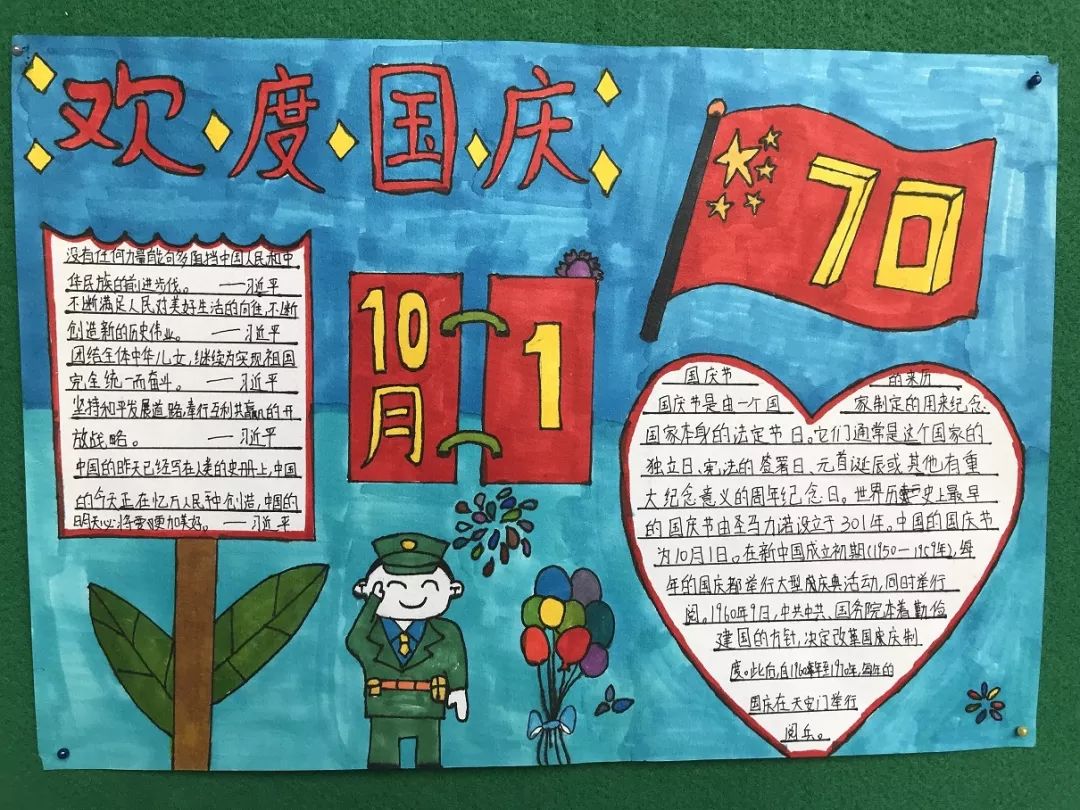 欢度国庆
70
没有任何力量能够阻挡中国人民和中
华民族的前进步伐。 ——习近平
不断满足人民对美好生活的向往,不断
创造新的历史伟业。 ——习近平
团结全体中华儿女,继续为实现祖国
完全统一而奋斗。 ——习近平
坚持和平发展道路,奉行互利共赢的开
放战略。 ——习近平
中国的昨天已经写在人类的史册上,中国
的今天正在亿万人民手中创造,中国的
明天必将更加美好。 ——习近平
10月
1
国庆节 的来历
国庆节是由一个国 家制定的用来纪念
国家本身的法定节日。它们通常是这个国家的
独立日、宪法的签署日、元首诞辰或其他有重
大纪念意义的周年纪念日。世界历史上最早
的国庆节由圣马力诺设立于301年。中国的国庆节
为10月1日。在新中国成立初期(1950—1959年),每
年的国庆都举行大型庆典活动,同时举行
阅。1960年9日,中共中共、国务院本着勤俭
建国的方针,决定改革国庆制
度。此后,自1960年至1970年,每年的
国庆在天安门举行
阅兵。